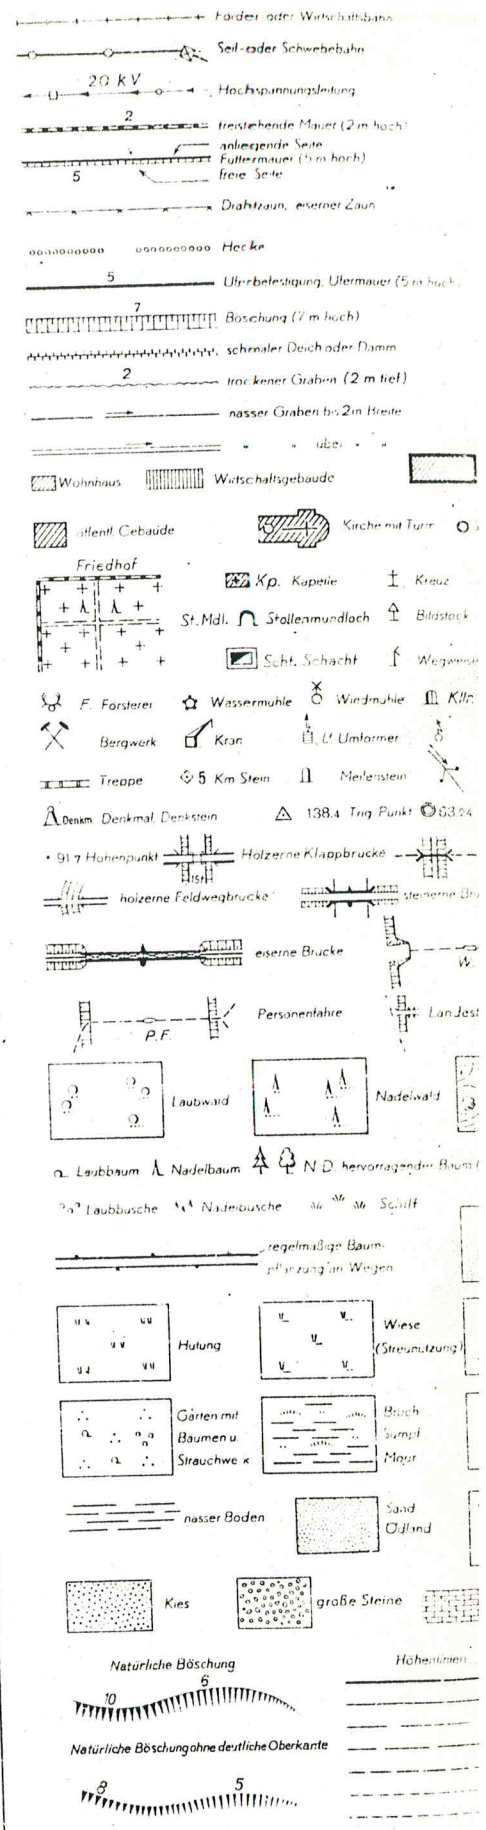 Förder- oder Wirtschaftsbahn
Seil- oder Schwebebahn
20 kV
Hochspannungsleitung
2
freistehende Mauer (2 m hoch)
anliegende Seite
Futtermauer (5 m hoch)
5
freie Seite
Drahtzaun, eiserner Zaun
Hecke
5
Uferbefestigung, Ufermauer (5 m hoch)
7
Böschung (7 m hoch)
schmaler Deich oder Damm
2
trockener Graben (2 m tief)
nasser Graben bis 2 m Breite
" " über " "
Wohnhaus Wirtschaftsgebäude
öffentl. Gebäude Kirche mit Turm
Friedhof
Kp. Kapelle Kreuz
St. Mdl. Stollenmundloch Bildstock
Scht. Schacht Wegweise
F. Försterei Wassermühle Windmühle
Bergwerk Kran Umformer
Treppe 5 Km Stein Meilenstein
Denkm Denkmal, Denkstein 138.4 Trig. Punkt
91.7 Höhenpunkt Hölzerne Klappbrücke
hölzerne Feldwegbrücke steinerne Brü
eiserne Brücke
W.
Personenfähre Landest
P.F.
Laubwald Nadelwald
Laubbaum Nadelbaum N.D. hervorragender Baum
Laubbüsche Nadelbüsche Schilf
regelmäßige Baum-
pflanzung an Wegen
Hutung
Wiese
(Streunutzung)
Gärten mit
Bäumen u.
Bruch
Sumpf
Moor
nasser Boden
Sand
Ödland
Kies große Steine
Natürliche Böschung Höhenlinien
10 6
Natürliche Böschung ohne deutliche Oberkante
8 5